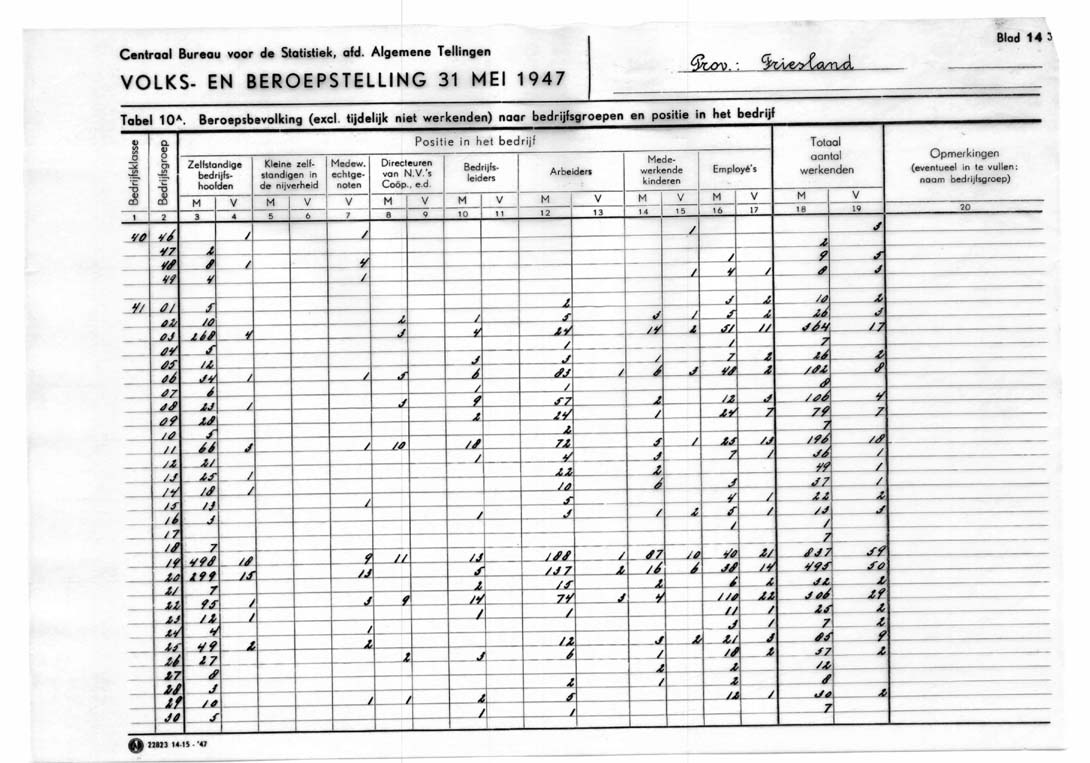 Blad 14 3
Centraal Bureau voor de Statistiek, afd. Algemene Tellingen
VOLKS- EN BEROEPSTELLING 31 MEI 1947
Prov.: Friesland
Tabel 10A. Beroepsbevolking (excl. tijdelijk niet werkenden) naar bedrijfsgroepen en positie in het bedrijf
Bedrijfsklasse
Bedrijfsgroep
Positie in het bedrijf
Zelfstandige bedrijfs-hoofden
Kleine zelf-standigen in de nijverheid
Medew. echtge-noten
Directeuren van N.V.'s Coöp., e.d.
Bedrijfs-leiders
Arbeiders
Mede-werkende kinderen
Employé's
Totaal aantal werkenden
Opmerkingen (eventueel in te vullen: naam bedrijfsgroep)
M V M V V M V M V M V M V M V M V
1 2 3 4 5 6 7 8 9 10 11 12 13 14 15 16 17 18 19 20
40 46 1 1 1 3
47 2 2
48 8 1 4 1 9 5
49 4 1 1 4 1 8 3
41 01 5 2 3 2 10 2
02 10 2 1 5 3 1 5 2 26 3
03 268 4 3 4 24 14 2 51 11 364 17
04 5 1 1 7
05 12 3 3 1 7 2 26 2
06 34 1 1 5 6 83 1 6 3 48 2 182 8
07 6 1 1 8
08 23 1 3 9 57 2 12 3 106 4
09 28 2 24 1 24 7 79 7
10 5 2 7
11 66 3 1 10 18 72 5 1 25 13 196 18
12 21 1 4 3 7 1 36 1
13 25 1 22 2 49 1
14 18 1 10 6 3 37 1
15 13 1 5 4 1 22 2
16 3 1 3 1 2 5 1 13 3
17 1 1
18 7 7
19 498 18 9 11 13 188 1 87 10 40 21 837 59
20 299 15 13 5 137 2 16 6 38 14 495 50
21 7 2 15 2 6 2 32 2
22 95 1 3 9 14 74 3 4 110 22 306 29
23 12 1 1 1 11 1 25 2
24 4 1 3 1 7 2
25 49 2 2 12 3 2 21 3 85 9
26 27 2 3 6 1 18 2 57 2
27 8 2 2 12
28 3 2 1 2 8
29 10 1 1 2 5 12 1 30 2
30 5 1 1 7
22823 14-15 - '47